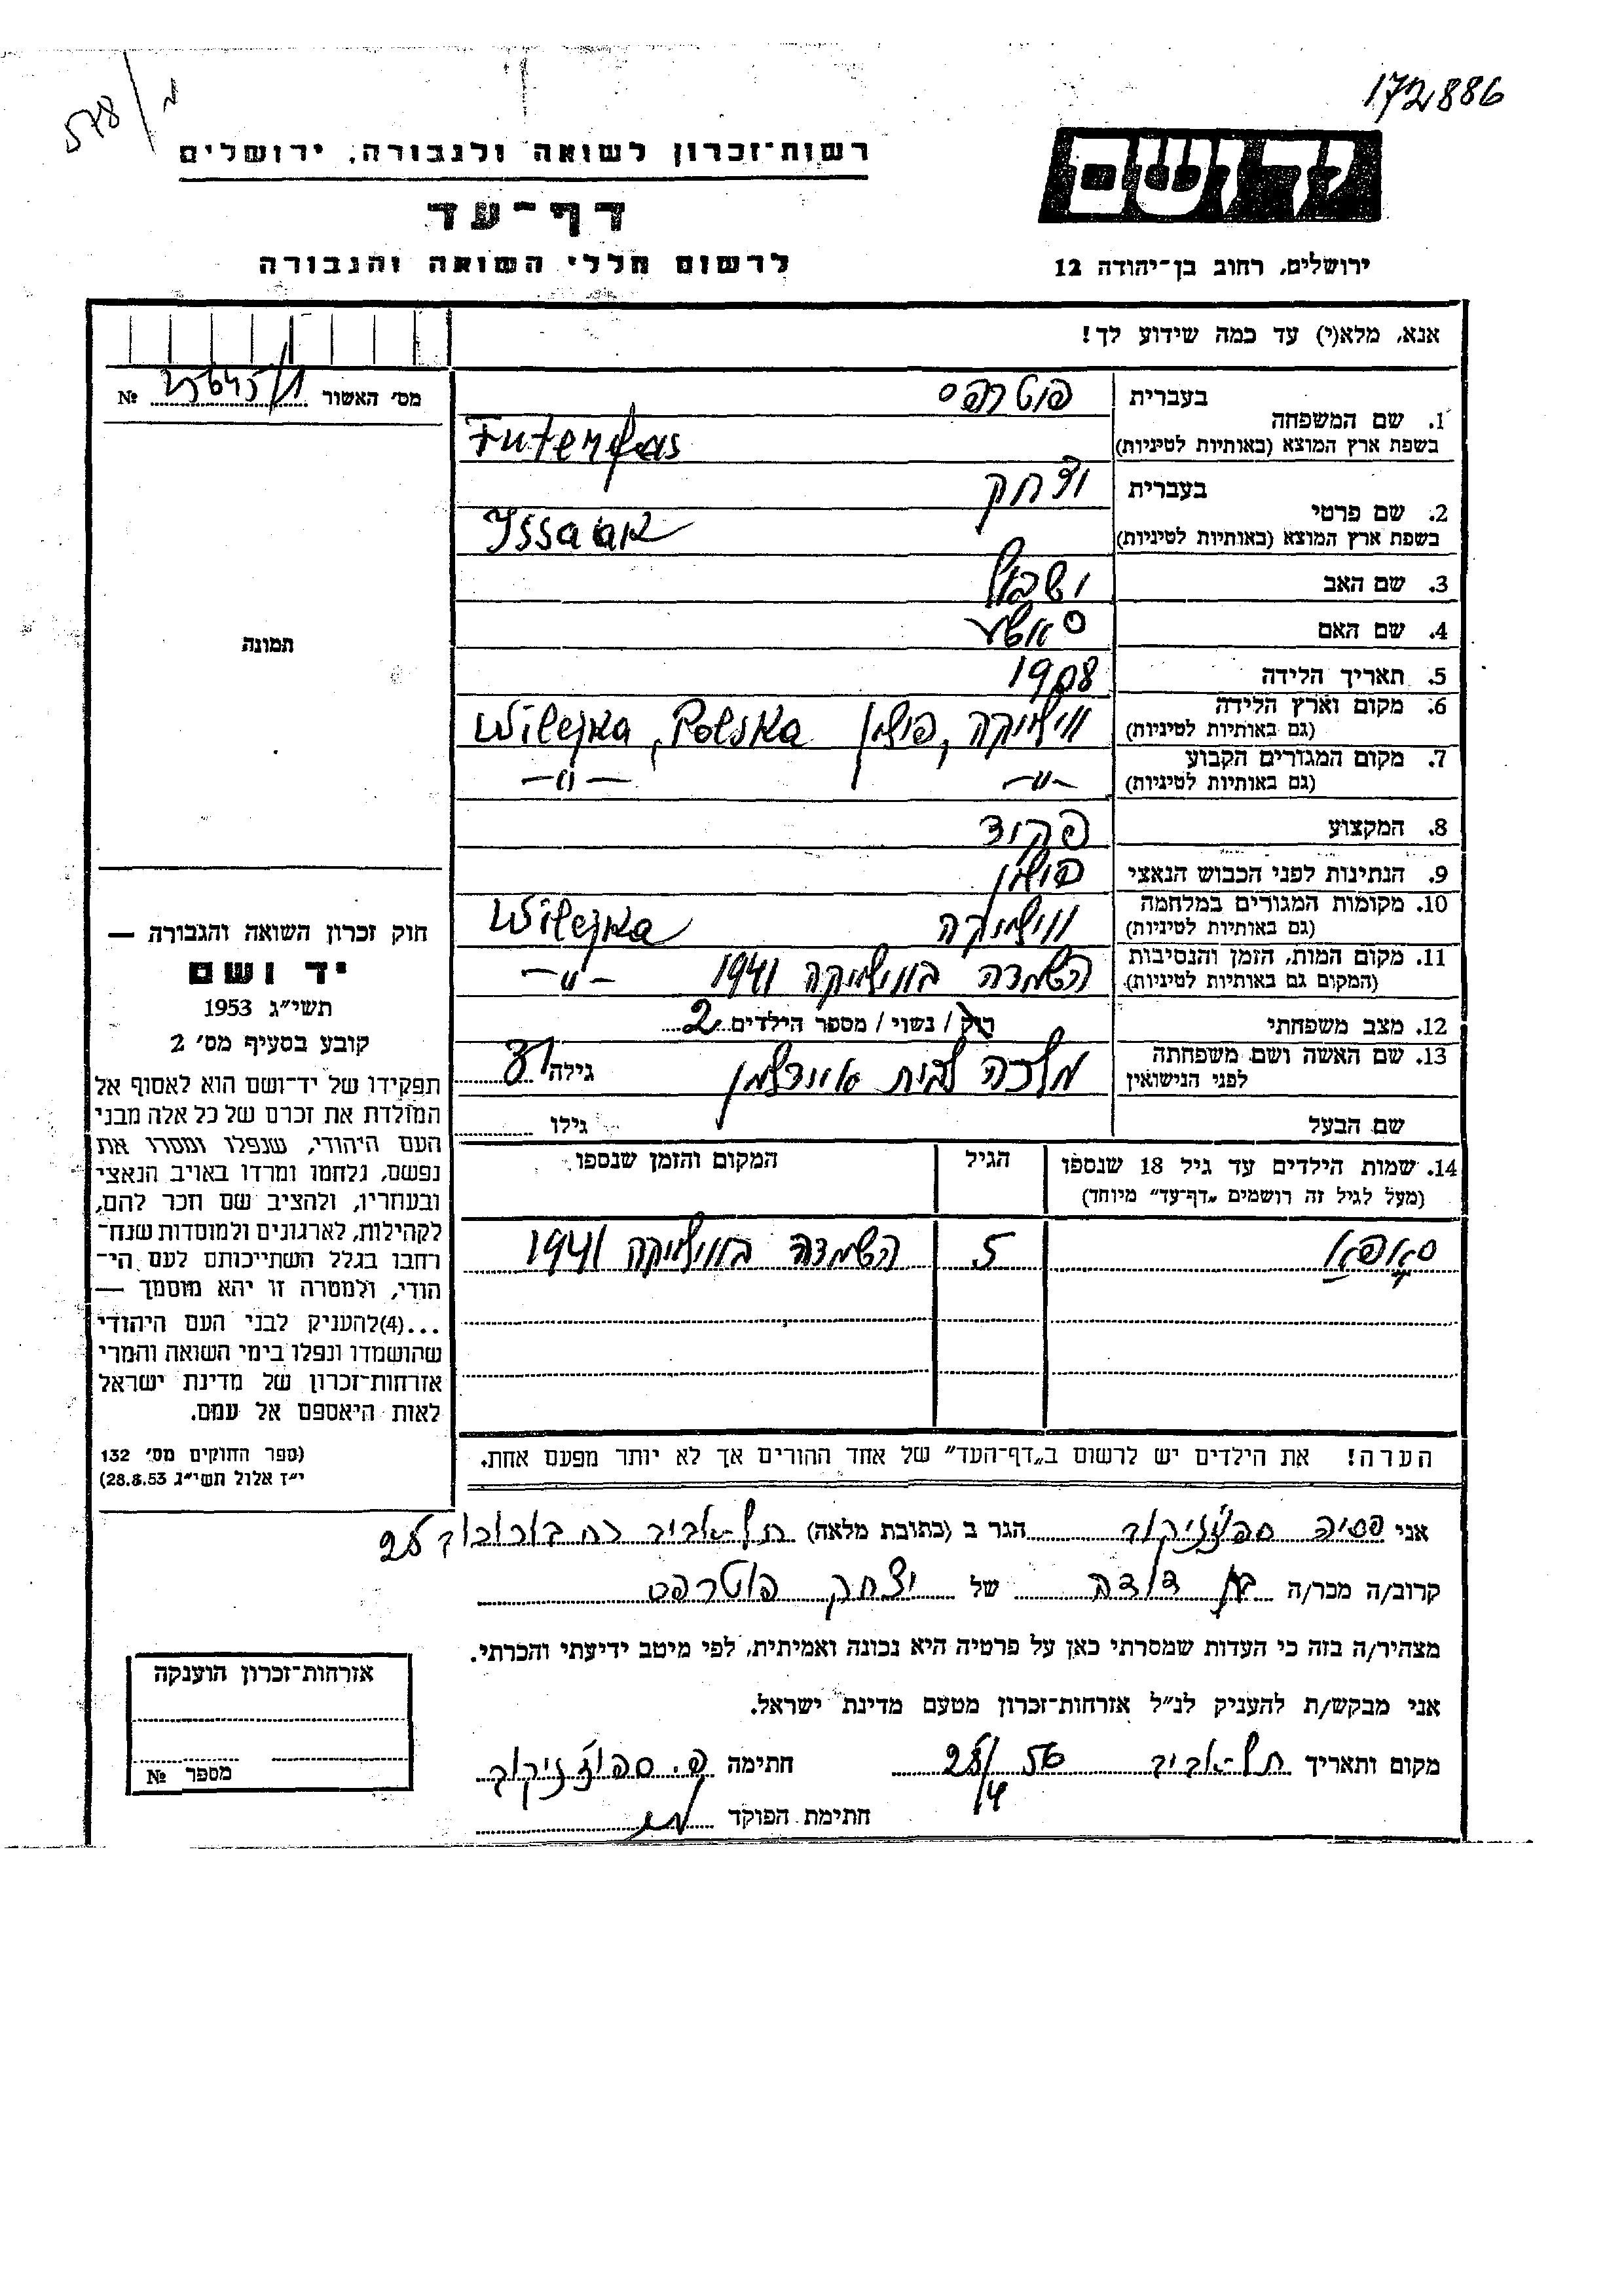 172886
578/מ
יד ושם
רשות־זכרון לשואה ולגבורה, ירושלים
דף־עד
לרשום חללי השואה והגבורה
ירושלים, רחוב בן־יהודה 12
אנא, מלא(י) עד כמה שידוע לך!
מס' האשור № 25645/1
תמונה
בעברית פוטרפס
1. שם המשפחה
בשפת ארץ המוצא (באותיות לטיניות) Futerfas
בעברית יצחק
2. שם פרטי
בשפת ארץ המוצא (באותיות לטיניות) Yssaak
3. שם האב
4. שם האם
5. תאריך הלידה 1908
6. מקום וארץ הלידה
(גם באותיות לטיניות) ווילייקה, פולין Wilejka, Polska
7. מקום המגורים הקבוע
(גם באותיות לטיניות) -״- -״-
8. המקצוע פקיד
9. הנתינות לפני הכבוש הנאצי פולין
10. מקומות המגורים במלחמה
(גם באותיות לטיניות) ווילייקה Wilejka
11. מקום המות, הזמן והנסיבות
(המקום גם באותיות לטיניות). השמדה בווילייקה 1941 -״-
12. מצב משפחתי רוק / נשוי / מספר הילדים 2
13. שם האשה ושם משפחתה
לפני הנישואין מלכה לבית גילה 31
שם הבעל גילו
14. שמות הילדים עד גיל 18 שנספו
(מעל לגיל זה רושמים „דף־עד" מיוחד)
הגיל
המקום והזמן שנספו
5 השמדה בווילייקה 1941
הערה! את הילדים יש לרשום ב„דף־העד" של אחד ההורים אך לא יותר מפעם אחת.
חוק זכרון השואה והגבורה —
יד ושם
תשי״ג 1953
קובע בסעיף מס' 2
תפקידו של יד־ושם הוא לאסוף אל
המולדת את זכרם של כל אלה מבני
העם היהודי, שנפלו ומסרו את
נפשם, נלחמו ומרדו באויב הנאצי
ובעוזריו, ולהציב שם וזכר להם,
לקהילות, לארגונים ולמוסדות שנח־
רבו בגלל השתייכותם לעם הי־
הודי, ולמטרה זו יהא מוסמך —
...(4)להעניק לבני העם היהודי
שהושמדו ונפלו בימי השואה והמרי
אזרחות־זכרון של מדינת ישראל
לאות היאספם אל עמם.
(ספר החוקים מס' 132
י״ז אלול תשי״ג 28.8.53)
אני פסיה הגר ב (כתובת מלאה) תל-אביב רח בורוכוב 28
קרוב/ה מכר/ה בת דודה של יצחק פוטרפס
מצהיר/ה בזה כי העדות שמסרתי כאן על פרטיה היא נכונה ואמיתית, לפי מיטב ידיעתי והכרתי.
אני מבקש/ת להעניק לנ״ל אזרחות־זכרון מטעם מדינת ישראל.
מקום ותאריך תל-אביב 28/4 56 חתימה פ.
חתימת הפוקד
אזרחות־זכרון הוענקה
מספר №